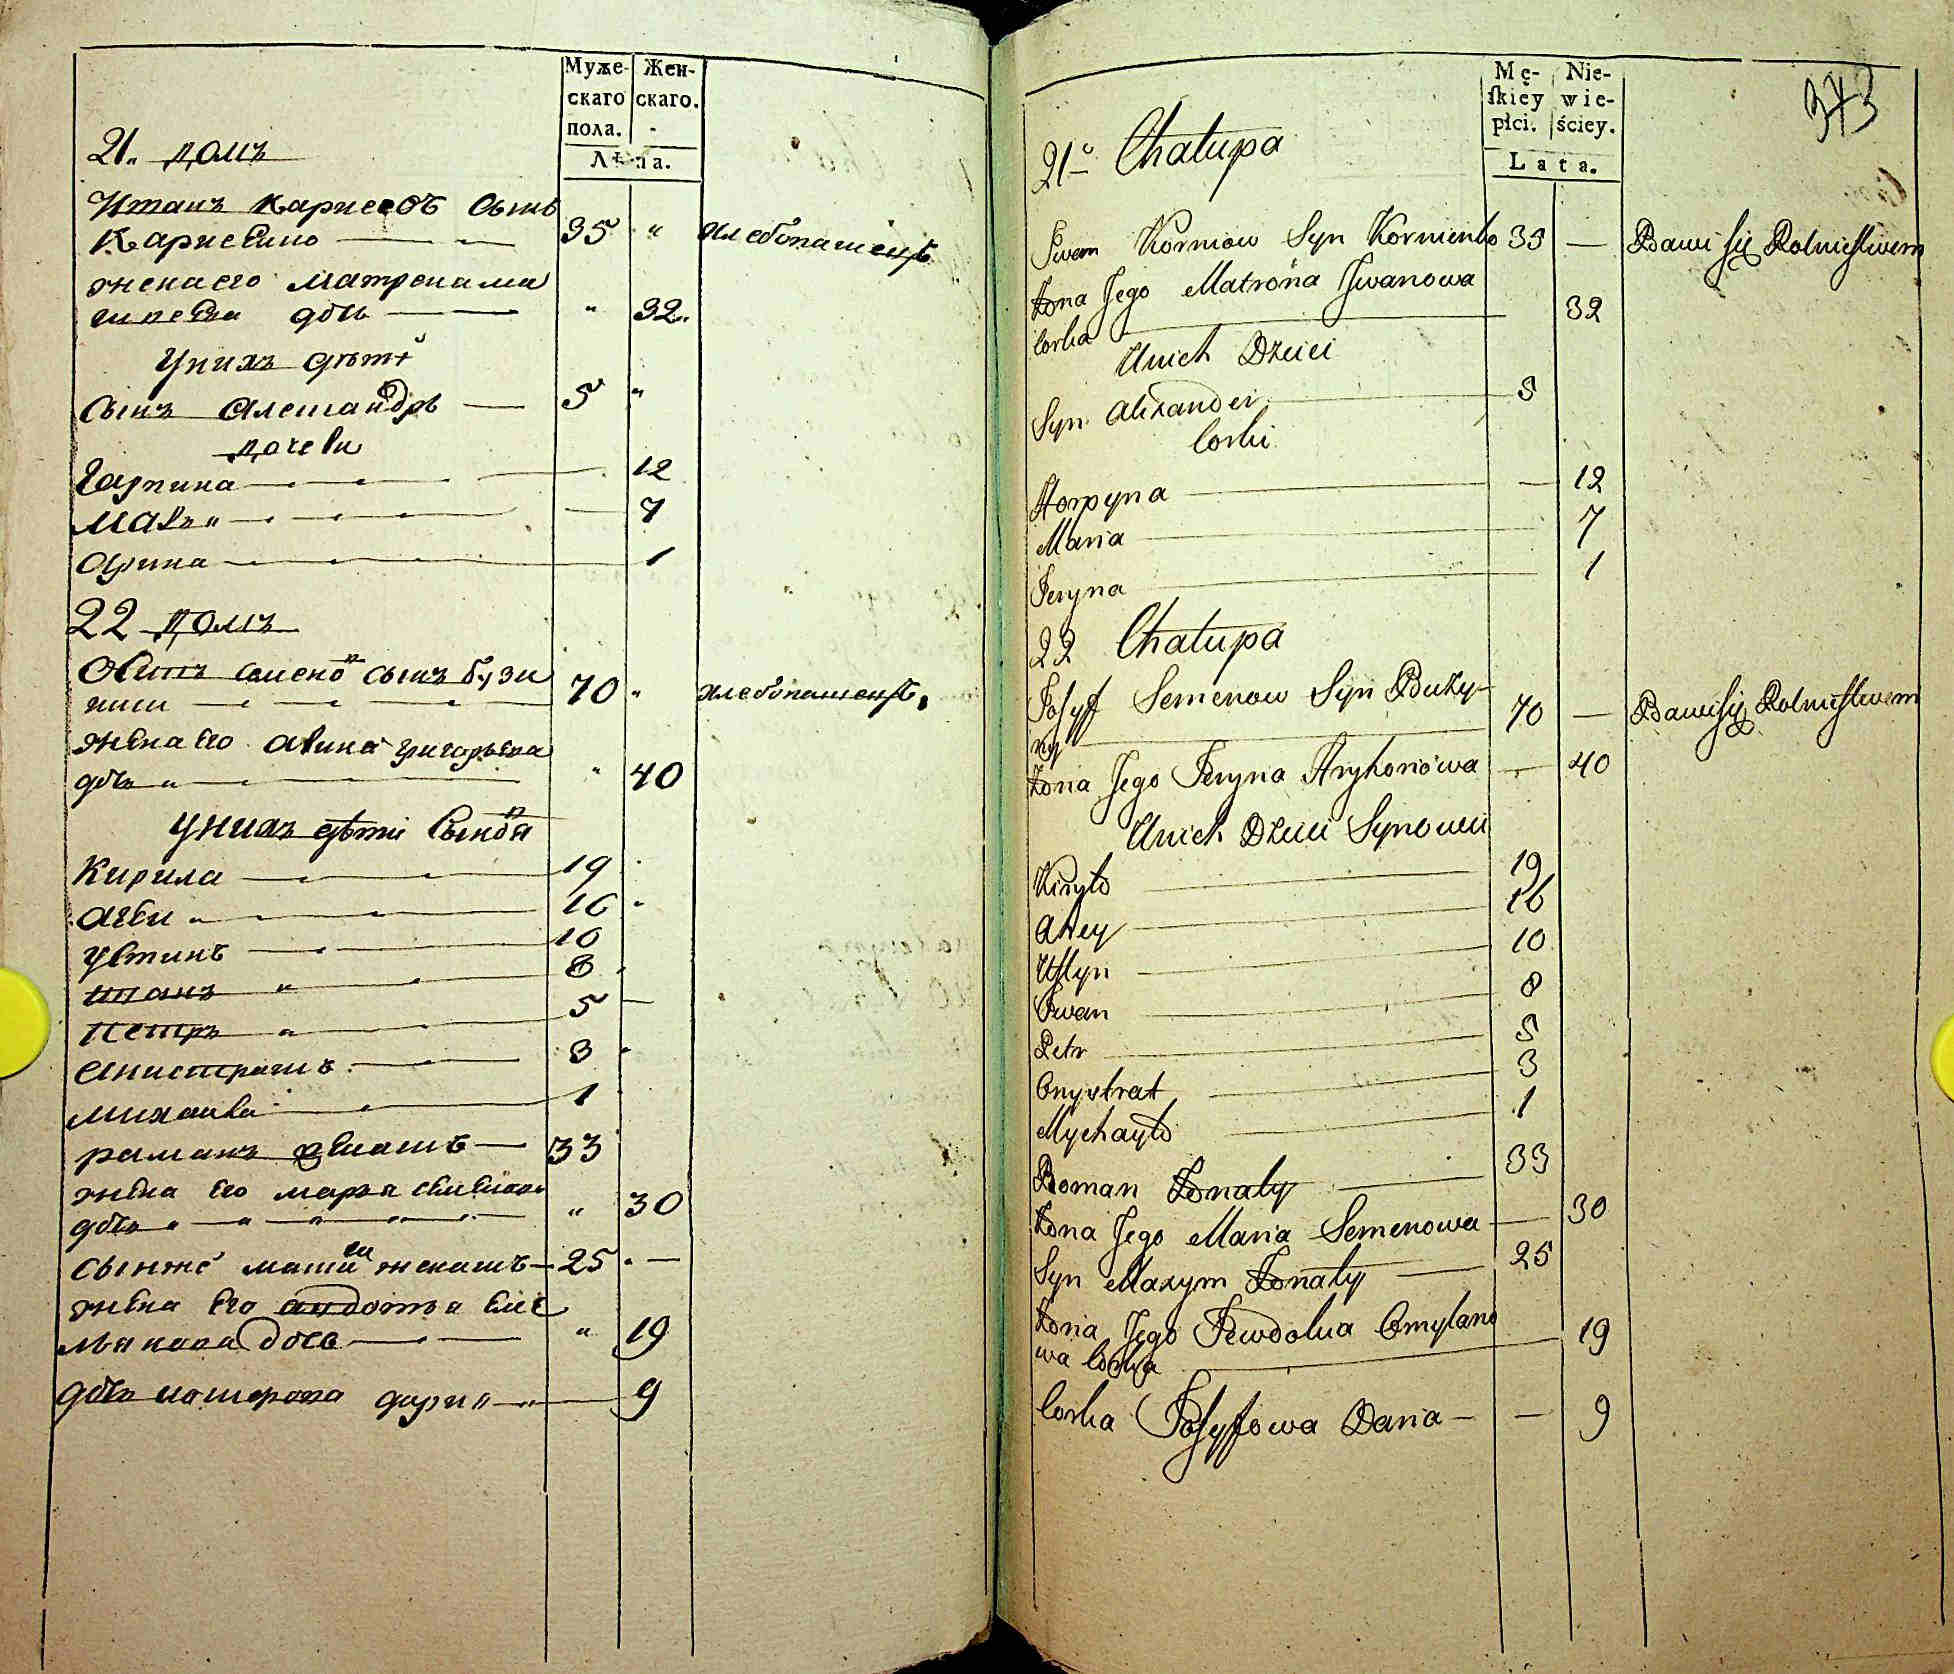 Муже-
скаго
пола.
Жен-
скаго.
Лѣта.
21. домъ
Иванъ Карнеевъ сынъ
Карнеенко 35 " хлебопашецъ
жена его матрена
дочь " 32.
У нихъ дѣти
Сынъ Алешандръ 5 "
дочери
Гарпина 12
Маря 7
Арина 1
22 домъ
Осипъ Семеновъ сынъ Бузи
70 " хлебопашецъ,
жена его Арина григорьева
дочь " 40
У нихъ дѣти Сыновя
Кирила 19
16
Устинъ 10
Иванъ 8
Петръ 5
Анистратъ 3
Михаила 1
раманъ женатъ 33
жена его маря
дочь " 30
женатъ 25
жена его авдотья Еме
льянова дочь " 19
дочь дария 9
Mę-
ſkiey
płci.
Nie-
wie-
ściey.
Lata.
373
21 Chałupa
Iwan Korniow Syn Kornienko 35 — Bawi się Rolnictwem
Żona Jego Matrona Iwanowa
Corka 32
U nich Dzieci
Syn Alexander 5
Corki
Horpyna — 12
Maria 7
Jeryna 1
22 Chałupa
Josyff Semenow Syn Buzy-
ny 70 — Bawi się Rolnictwem
Żona Jego Jeryna Hryhorowa — 40
U nich Dzieci Synowie
Kiryło 19
16
Ustyn 10
Iwan 8
Petr 5
Onystrat 3
Mychayło 1
Roman Żonaty 33
Żona Jego Maria Semenowa — 30
Syn Maxym Żonaty 25
Żona Jego Jewdokia Omylano
wa Corka 19
Corka Josyffowa Daria — 9